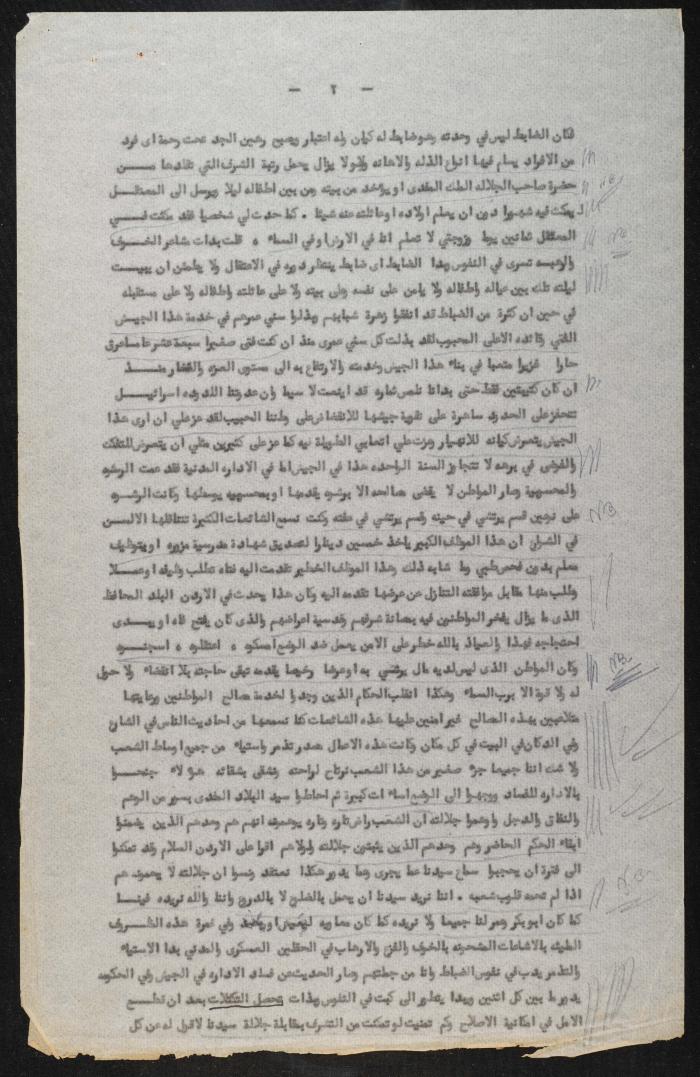 — ٢ —
فكان الضابط ليس في وحدته وهو ضابط له كيان وله اعتبار ويصبح رهين الجد تحت رحمة اى فرد
من الافراد يسلم فيها انواع الذله والاهانه وهو لا يزال يحمل رتبة الشرف التي تقلدها مـــن
حضرة صاحب الجلاله الملك المفدى او يؤخذ من بيته ومن بين اطفاله ليلا ويرسل الى المعتقــل
ليمكث فيه شهورا دون ان يعلم اولاده او عائلته عنه شيئا . كما حدث لي شخصيا فقد مكثت فــي
المعتقل ثمانين يوما وزوجتي لا تعلم انا في الارض او في السماء ، قلت بدات مشاعر الخــوف
والرهبه تسرى في النفوس وبدا الضابط اى ضابط ينتظر دوره في الاعتقال ولا يطمئن ان يبيــت
ليلته تلك بين عياله واطفاله ولا يامن على نفسه وعلى بيته ولا على عائلته واطفاله ولا على مستقبله
في حين ان كثرة من الضباط قد انفقوا زهرة شبابهم وبذلوا سني عمرهم في خدمة هذا الجيش
الفتي وقائده الاعلى المحبوب لقد بذلت كل سني عمرى منذ ان كنت فتى صغيرا سبعة عشر عاما عرق
حارا غزيرا متصبا في بناء هذا الجيش وخدمته والارتفاع به الى مستوى العزه والفخار منــذ
ان كان كتيبتين فقط حتى بدانا نلمس ثماره قد اينعت لا سيما وان عدوتنا اللدوده اسرائيــل
تتحفز على الحدود ساهرة على تقوية جيشها للانقضاض على وطننا الحبيب لقد عز علي ان ارى هذا
الجيش يتعرض كيانه للانهيار وعزت علي اتعابي الطويلة فيه كما عز على كثيرين مثلي ان يتعرض للتفكك
والفوضى في برهه لا تتجاوز السنة الواحده هذا في الجيش اما في الاداره المدنية فقد عمت الرشوه
والمحسوبية وصار المواطن لا يقضي مصالحه الا برشوه يقدمها او بمحسوبيه يوسطها وكانت الرشــوه
على نوعين قسم يرتشي في جيبه وقسم يرتشي في عفته وكنت تسمع الشائعات الكثيرة تتناقلها الالسن
في الشوارع ان هذا الموظف الكبير ياخذ خمسين دينارا لتصديق شهادة مدرسية مزوره او بتوظيف
معلم بدون فحص طبي وما شابه ذلك وهذا الموظف الخطير تقدمت اليه فتاه تطلب وظيفه او عمــلا
وطلب منها مقابل مرافقته التنازل عن عرضها تقدمه اليه وكان هذا يحدث في الاردن البلد المحافظ
الذى ما يزال يفخر المواطنين فيه بصيانة شرفهم وقدسية اعراضهم والذى كان يفتح فاه او يبــدى
احتجاجه فهذا والعياذ بالله خطر على الامن يعمل ضد الوضع امسكوه ، اعتقلوه ، اسجنــوه
وكان المواطن الذى ليس لديه مال يرتشي به او عرضا رخيصا يقدمه تبقى حاجته بلا انقضاء ولا حول
له ولا قوة الا برب السماء وهكذا انقلب الحكام الذين وجدوا لخدمة مصالح المواطنين ورعايتها
متلاعبين بهذه المصالح غير امنين عليها هذه الشائعات كنا نسمعها من احاديث الناس في الشارع
وفي الدكان في البيت في كل مكان وكانت هذه الاعمال مصدر تذمر واستياء من جميع اوساط الشعب
ولا شك اننا جميعا جزء صغير من هذا الشعب نرتاح لراحته ونشقى بشقائه هؤلاء جنحــوا
بالاداره للفساد ووجهوا الى الوضع اساءات كبيرة ثم احاطوا سيد البلاد المفدى بسور من الوهم
والنفاق والدجل واوهموا جلالته ان الشعب راض تاره وتاره يوهموه انهم هم وحدهم الذين يثبتوا
ابقاء الحكم الحاضر وهم وحدهم الذين يثبتون جلالته ولولاهم اقرا على الاردن السلام وقد تمكنوا
الى فترة ان يحجبوا سماع سيدنا عما يجرى وما يدور هكذا نعتقد ونسوا ان جلالته لا يحموه هم
اذا لم تحمه قلوب شعبه . اننا نريد سيدنا ان يحمل بالضلوع لا بالدروع واننا والله نريده فينــا
كما كان ابو بكر وعمر لنا جميعا ولا نريده كما كان معاويه وفي غمرة هذه الظــروف
المليئه بالاشاعات المشحونه بالخوف والفزع والارهاب في الحقلين العسكرى والمدني بدا الاستياء
والتذمر يدب في نفوس الضباط وانا من جملتهم وصار الحديث عن فساد الاداره في الجيش وفي الحكومه
يدور ما بين كل اثنين وبدا يتطور الى كبت في النفوس وبدات تحصل التكتلات بعد ان نقطــع
الامل في امكانية الاصلاح وكم تمنيت لو تمكنت من التشرف بمقابلة جلالة سيدنا لاقول له عن كل